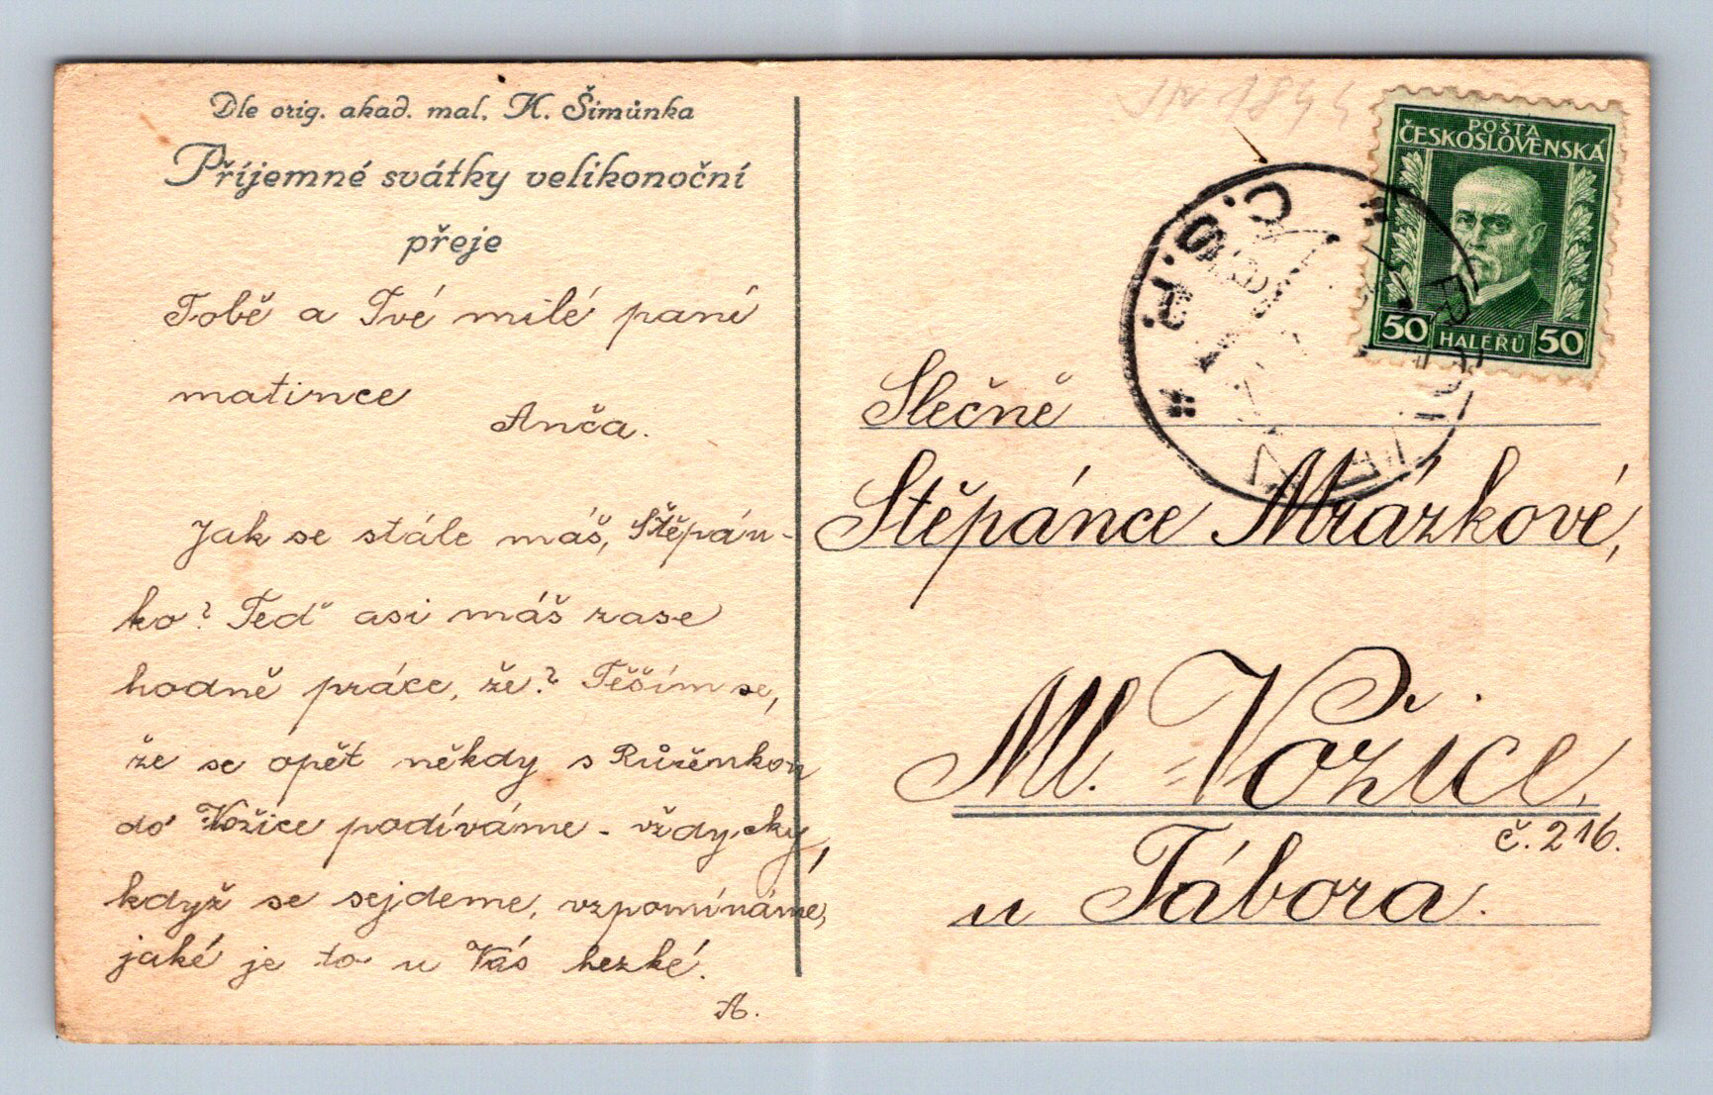 Dle orig. akad. mal. K. Šimůnka
Příjemné svátky velikonoční
přeje
Tobě a Tvé milé paní
matince
Anča.
Jak se stále máš, Štěpán-
ko? Teď asi máš zase
hodně práce, že? Těším se,
že se opět někdy s Růženkou
do Vožice podíváme - vždycky,
když se sejdeme, vzpomínáme,
jaké je to u Vás hezké.
A.
POŠTA
ČESKOSLOVENSKÁ
50 HALÉŘŮ 50
Č.S.P.
Slečně
Štěpánce Mrázkové,
Ml. Vožice
č. 216.
u Tábora.